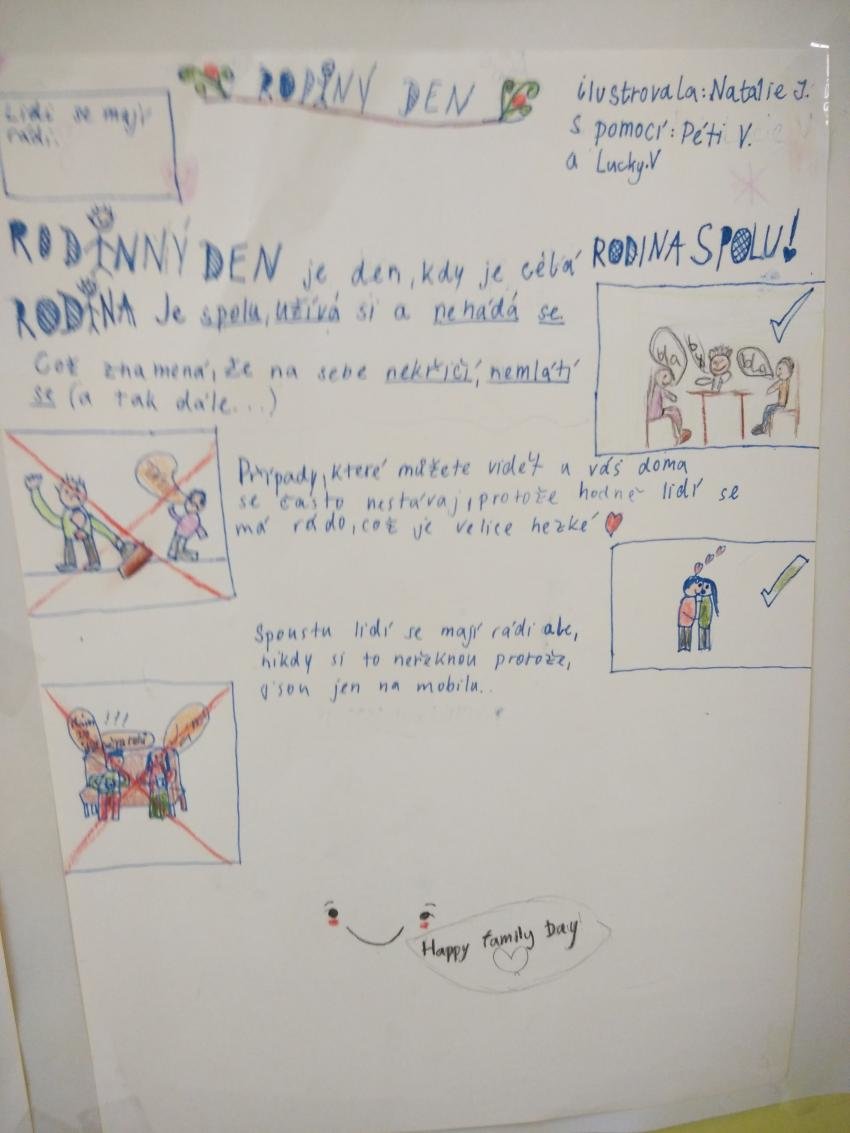 RODINÝ DEN
ilustrovala: Natalie J.
s pomocí: Péti V.
a Lucky.V
Lidi se mají
rádi.
RODINNÝ DEN je den, kdy je célá
RODINA Je spolu, užívá si a nehádá se
Což znamená, že na sebe nekřičí, nemlátí
se (a tak dále...)
RODINA SPOLU!
bla
bla
Případy, které můžete vidět u vás doma
se často nestávaj, protože hodně lidí se
má rádo, což je velice hezké
Spoustu lidí se mají rádi ale,
nikdy si to neřeknou protože,
gsou jen na mobilu..
!!!
Happy family Day